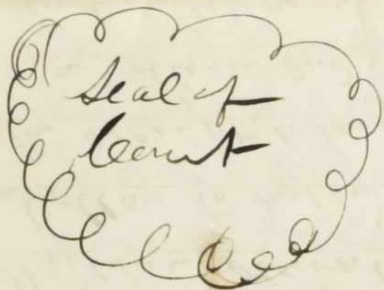 Seal of
Court